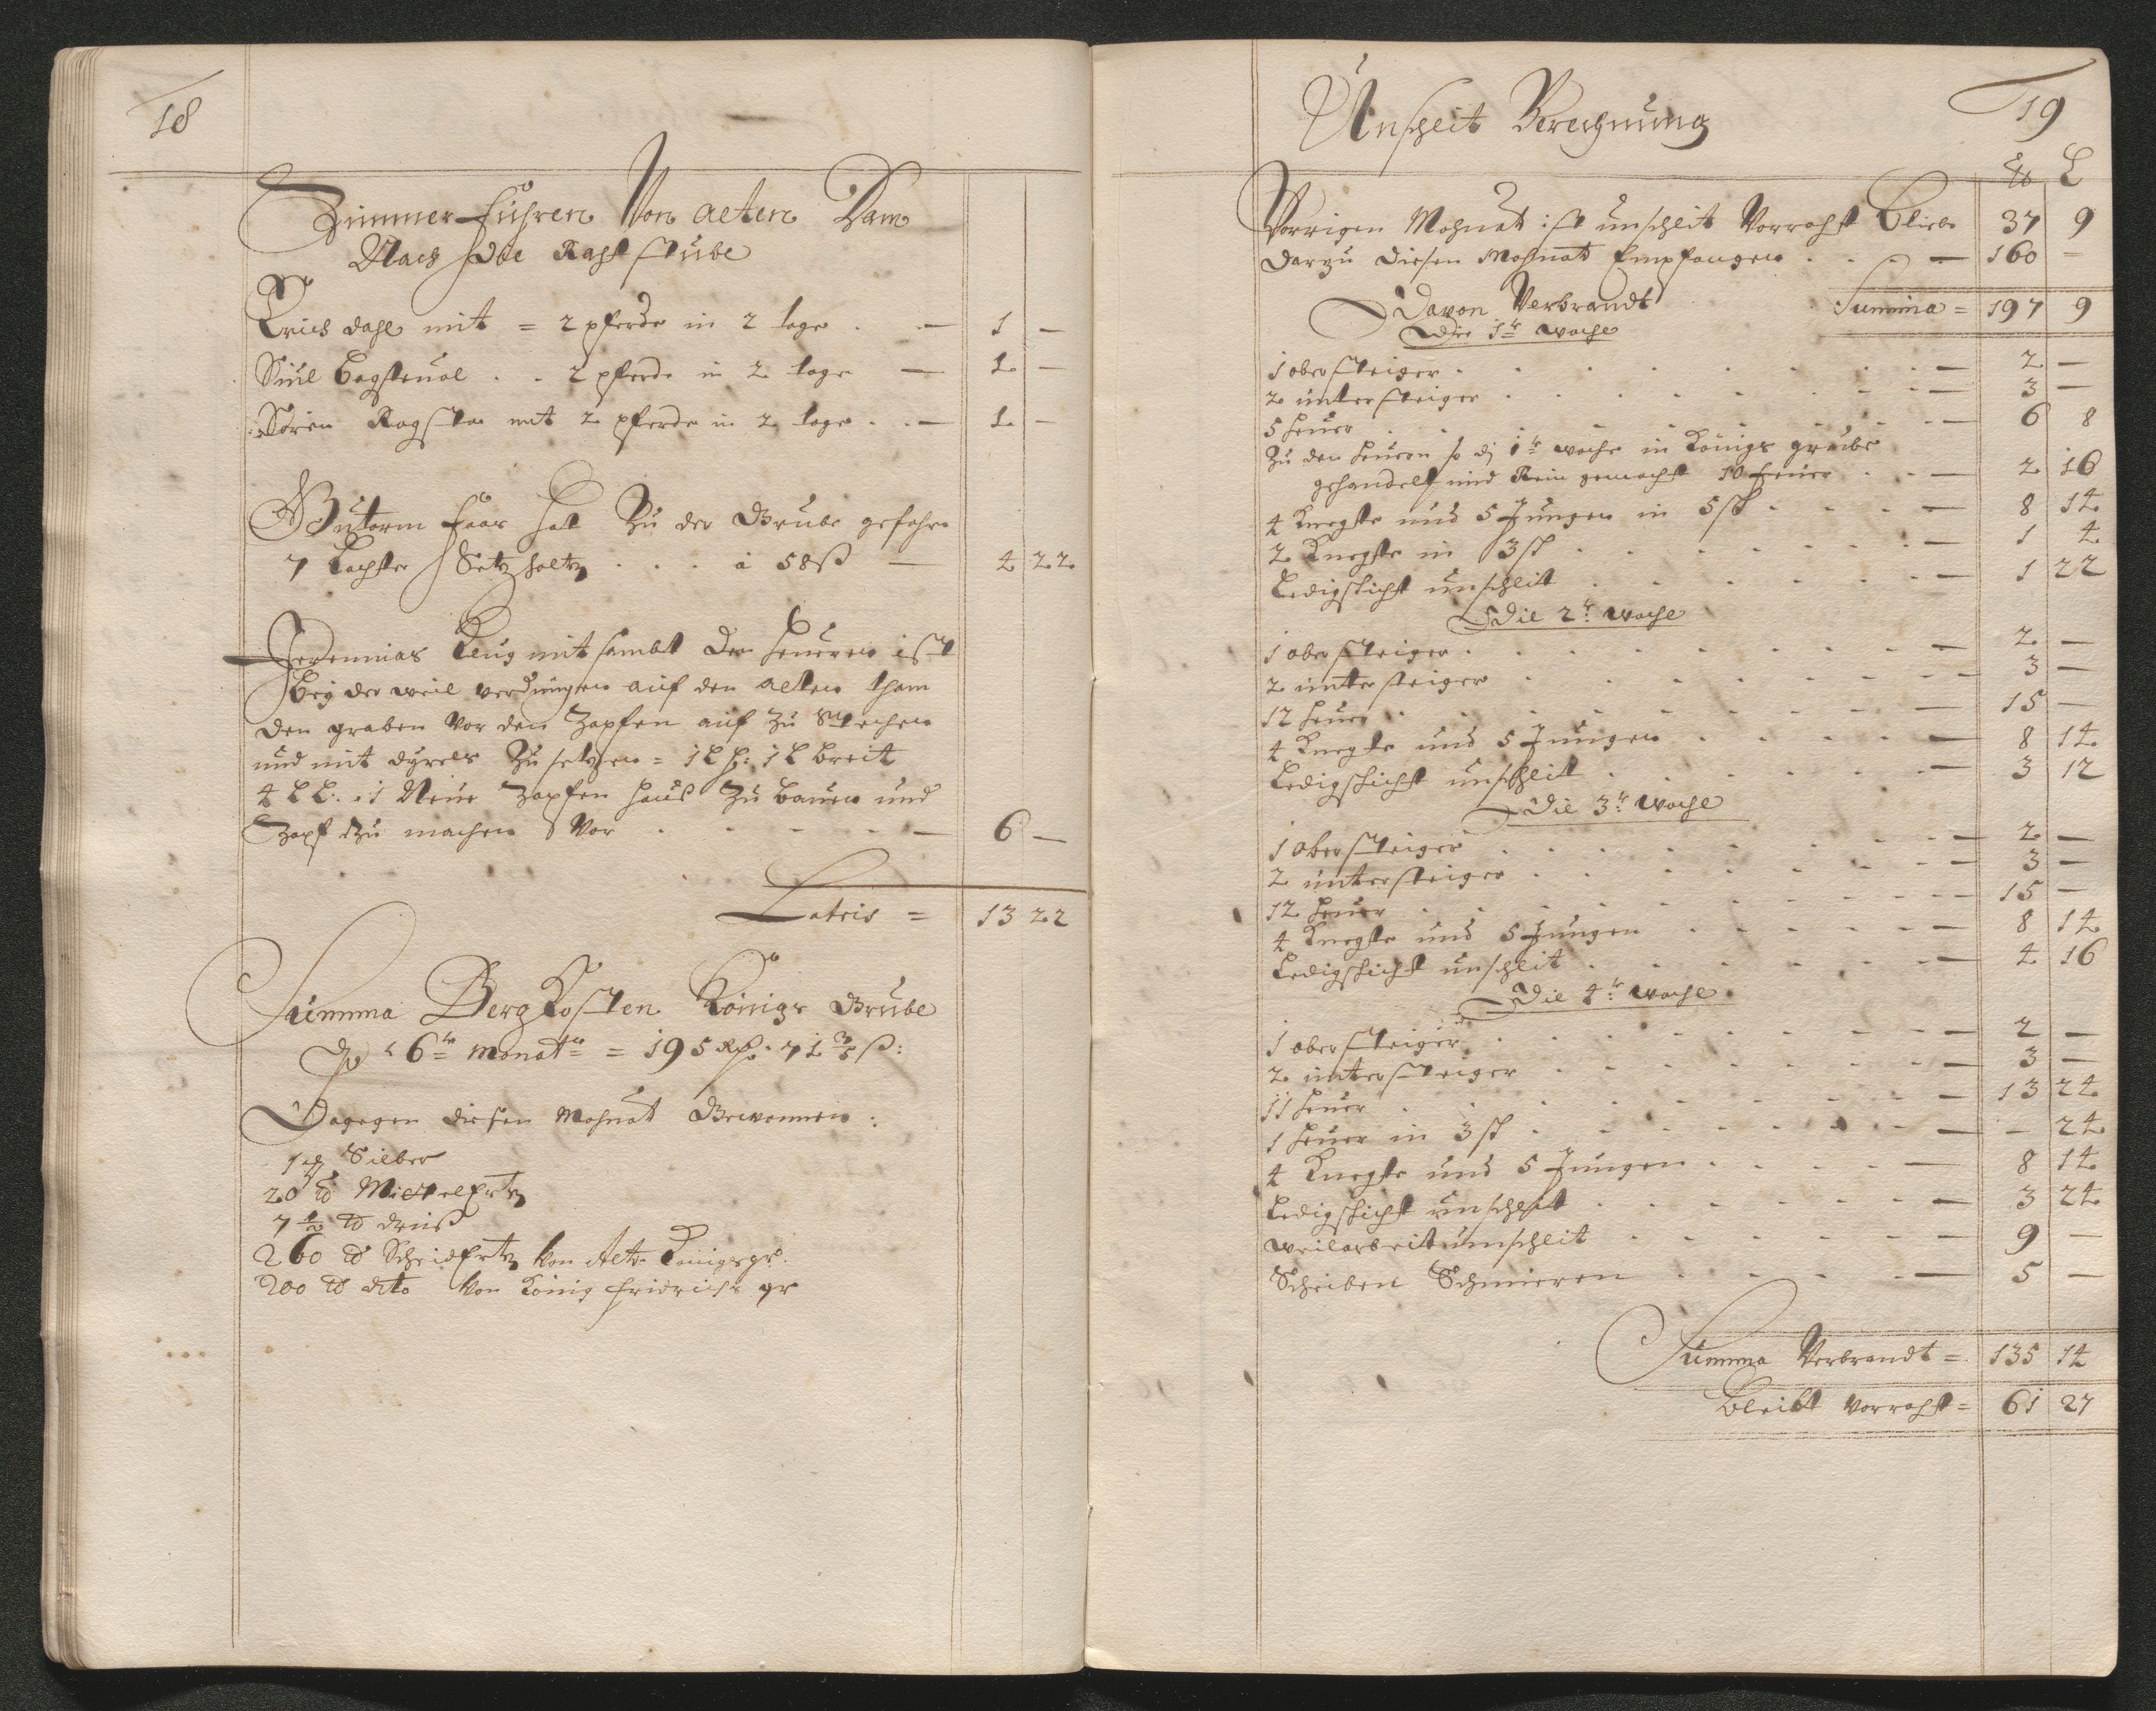 18
Zimmer führen Von alten Dam
Nach der Raststube
Erich dahl mit = 2 pferde in 2 tage . . — 1 —
. . 2 pferde in 2 tage — 1 —
Sören mit 2 pferde in 2 tage . . — 1 —
Gutorm foss hat Zu der Grube gefahren
7 Lachter Setzholtz . . . à 58 ß — 4 22
Jeremias mit sambt den heueren ist
beÿ der weil verdungen auf den alten tham
den graben Vor den Zapfen auf Zu Stechen
und mit Zu setzen = 1 L h: 1 L breit
4 L L: . 1 Neue Zapfen haus Zu bauen und
Zapf Zu machen Vor . . . . — 6 —
Lateris = 13 22
Summa Berg Kosten Königs Grube
6te monat = 195 Rth. 71 ß:
Dagegen diesen Mohnat Gewonnen:
Silber
20 td Mittelertz
7 ½ td
260 td Scheidertz Von Alte Königsgr.
200 td dito Von König fridrichs gr
19
Unschleit Berechnung
℔ L
Vorrigen Mohnat ist unschleit Vorraht blieben 37 9
darzu diesen Mohnat Empfangen . . . — 160 —
Summa = 197 9
Davon Verbrandt
Die 1te woche
1 obersteiger . . . . — 2 —
2 untersteiger . . . . — 3 —
5 heuer . . . . — 6 8
Zu den heuern so dj 1te woche in Königs grube
gehandelt und Rein gemacht 10 heuer . . — 2 16
4 Knegte und 5 Jungen in 5 sch . . . — 8 14
2 Knegte in 3 sch . . . . — 1 4
Ledigschicht unschleit . . . . — 1 22
Die 2te woche
1 obersteiger . . . . — 2 —
2 untersteiger . . . . — 3 —
12 heuer . . . . — 15 —
4 Knegte und 5 Jungen . . . . — 8 14
Ledigschicht unschleit . . . . — 3 12
Die 3te Woche
1 obersteiger . . . . — 2 —
2 untersteiger . . . . — 3 —
12 heuer . . . . — 15 —
4 Knegte und 5 Jungen . . . . — 8 14
Ledigschicht unschleit . . . . — 4 16
Die 4te woche
1 obersteiger . . . . — 2 —
2 untersteiger . . . . — 3 —
11 heuer . . . . — 13 24
1 heuer in 3 sch . . . . — - 24
4 Knegte und 5 Jungen . . . . — 8 14
Ledigschicht unschleit . . . . — 3 24
weilarbeit unschleit . . . . — 9 —
Scheiben Schmieren . . . . — 5 —
Summa Verbrandt = 135 14
bleibt vorraht = 61 27